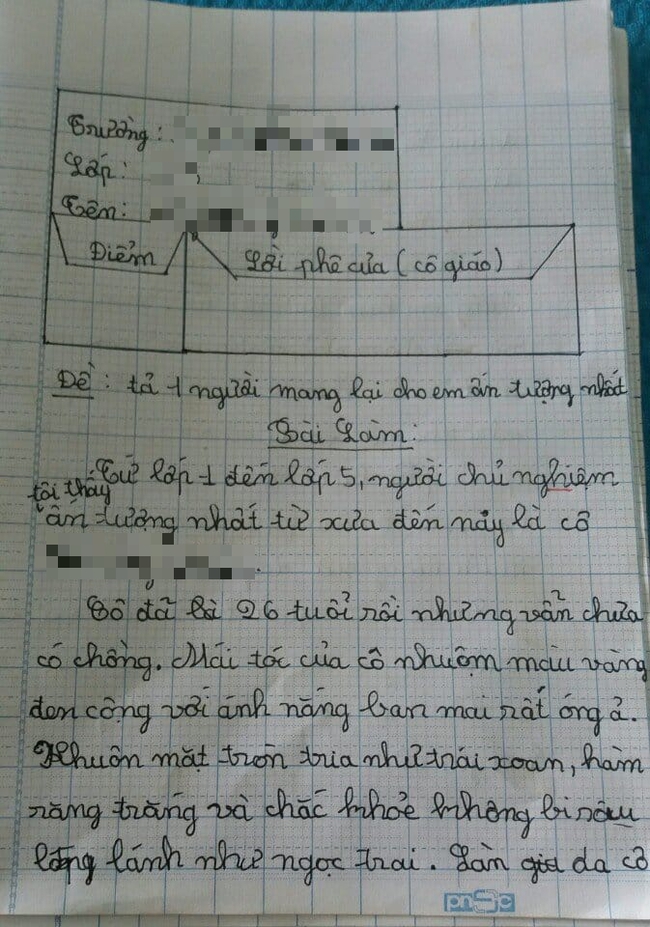 Trường:
Lớp:
Tên:
Điểm
Lời phê của (cô giáo)
Đề: tả 1 người mang lại cho em ấn tượng nhất
Bài Làm:
Từ lớp 1 đến lớp 5, người chủ nghiệm
tôi thấy
ấn tượng nhất từ xưa đến nảy là cô
Cô đã là 26 tuổi rồi nhưng vẫn chưa
có chồng. Mái tóc của cô nhuộm màu vàng
đen cộng với ánh nắng ban mai rất óng ả.
Khuôn mặt tròn trịa như trái xoan, hàm
răng trắng và chắc khoẻ không bị sâu
lóng lánh như ngọc trai. Làn da cô
pnSc